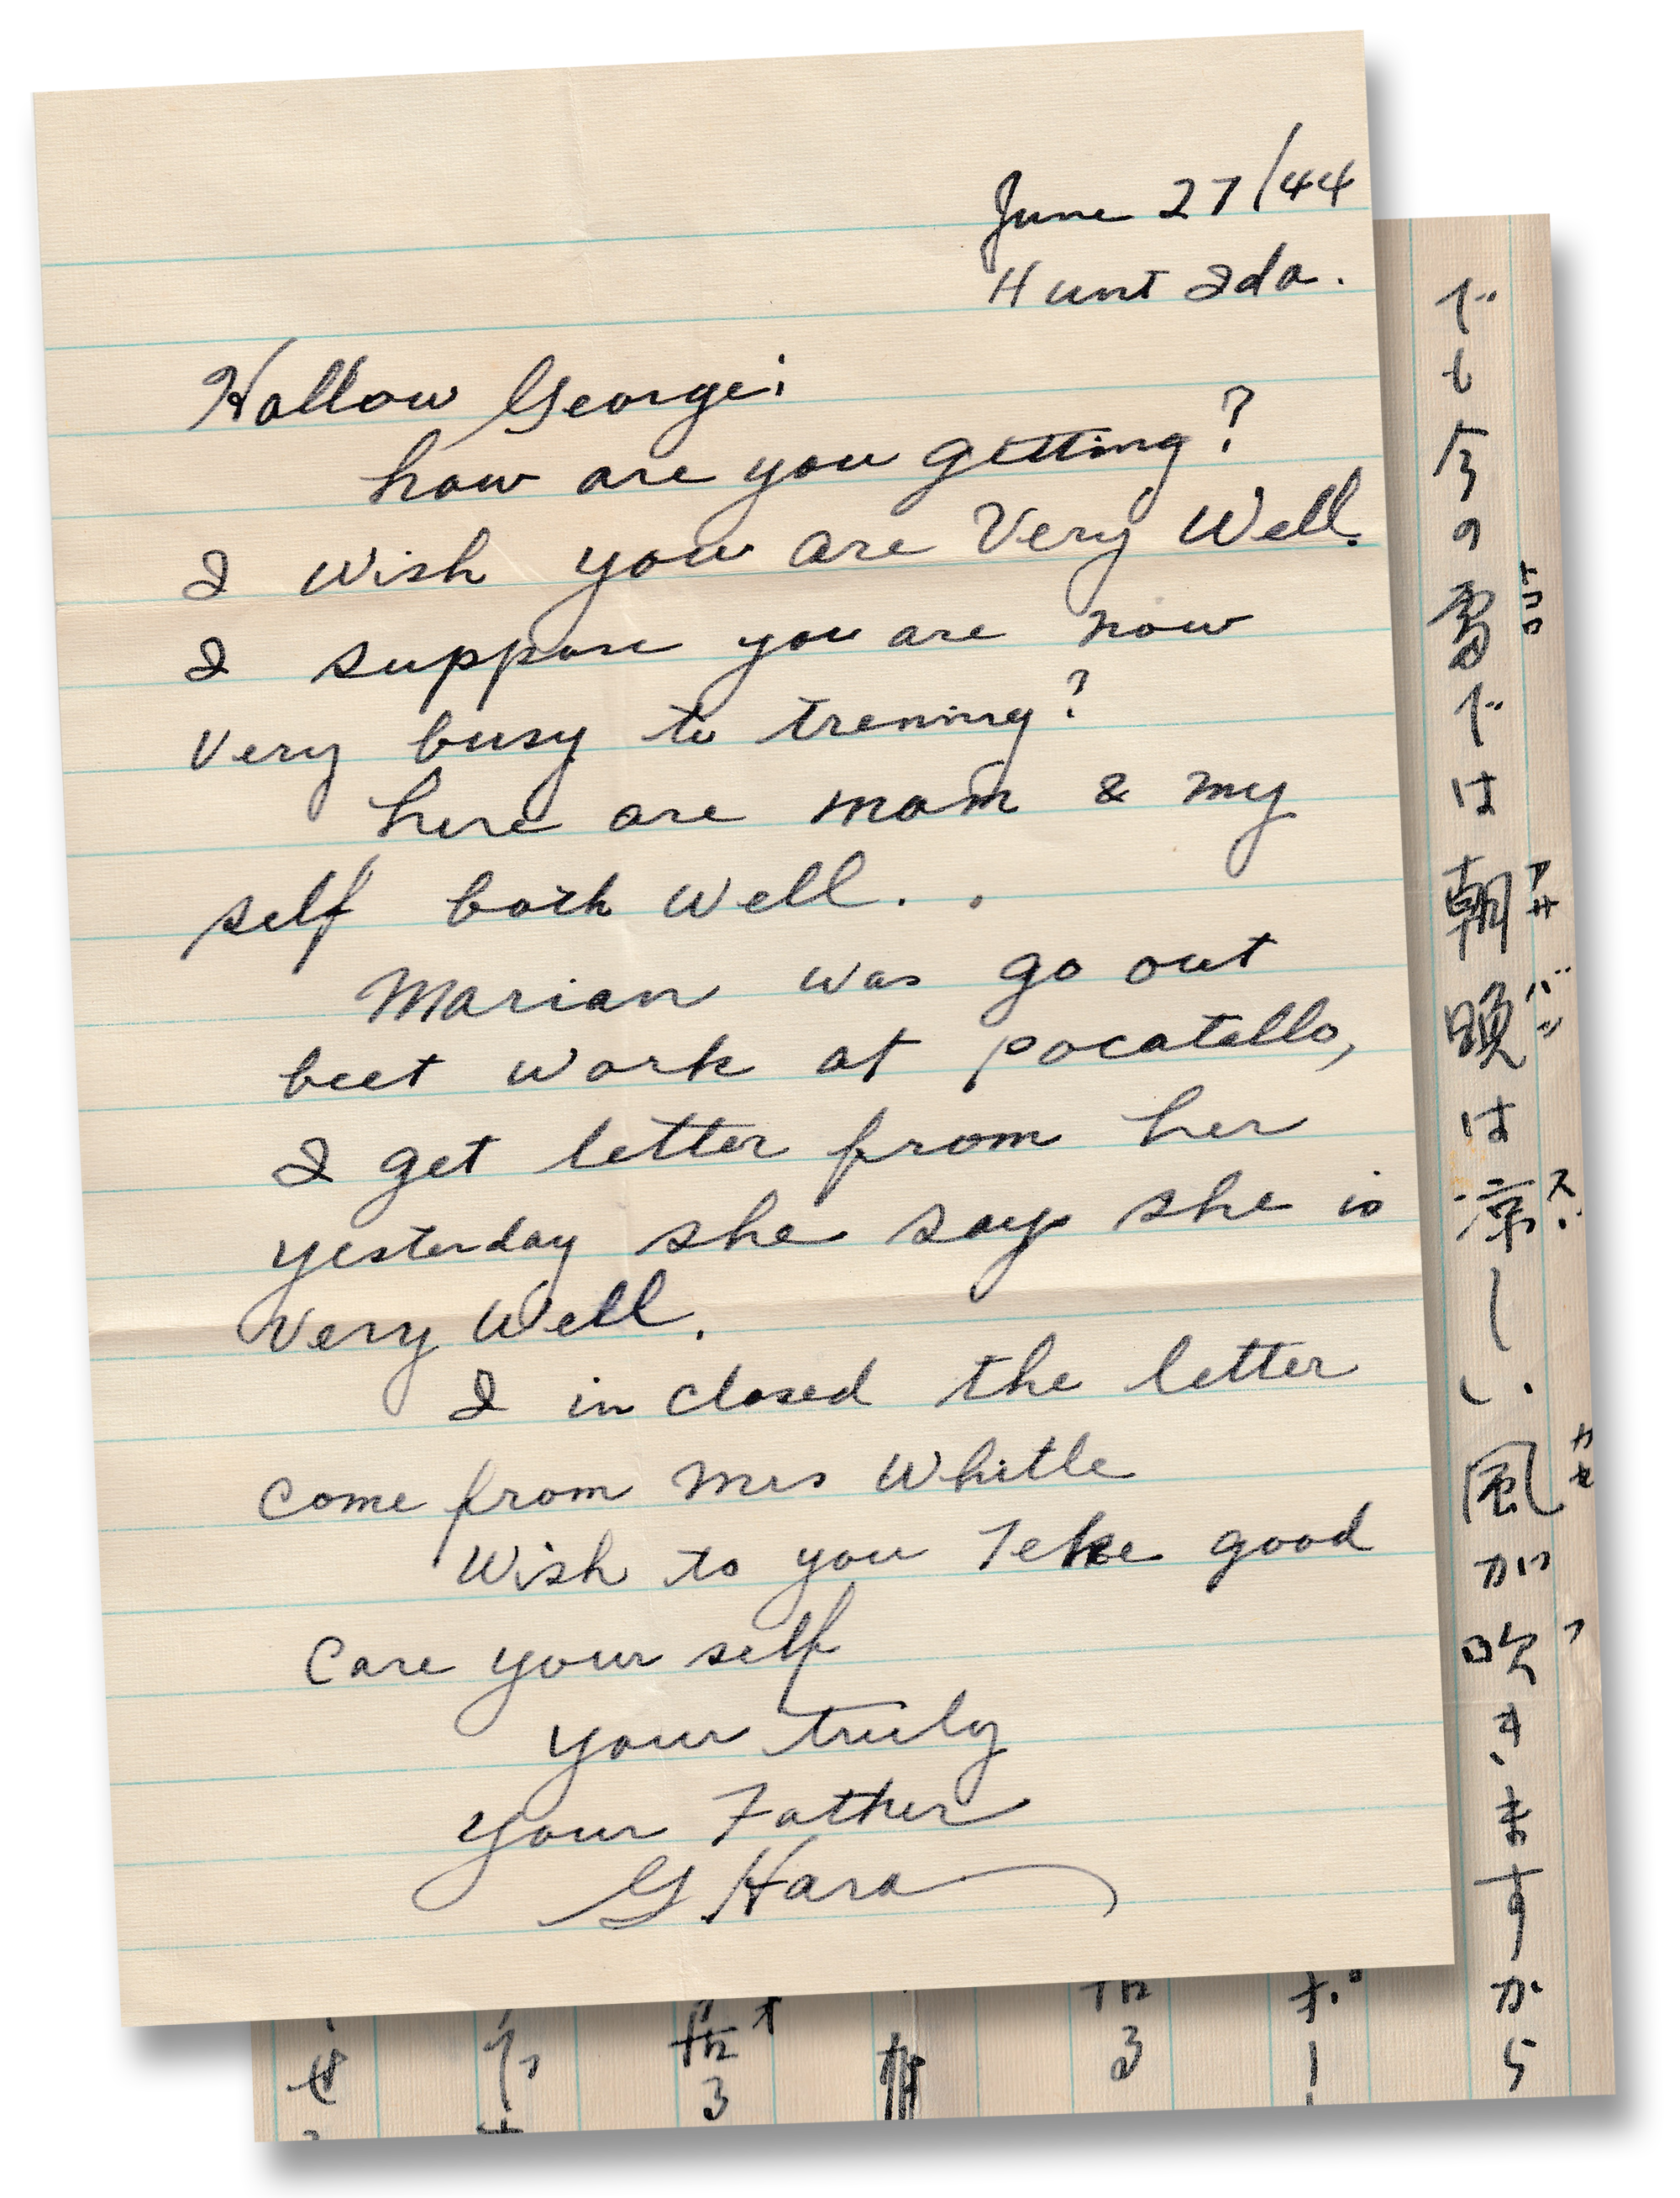 June 27/44
Hunt Ida.
Hallow George:
how are you getting?
I wish you are Very Well.
I suppose you are now
Very busy to trening?
here are mom & my
self both well. .
Marian was go out
beet work at pocatello,
I get letter from her
yesterday she say she is
Very Well.
I in closed the letter
come from Mrs Whitle
Wish to you Teke good
Care your self
your truly
your Father
G Hara
でも
の
OUT
では朝晩は涼しい風が吹きますから
アサ
バン
ス
カセ
フ